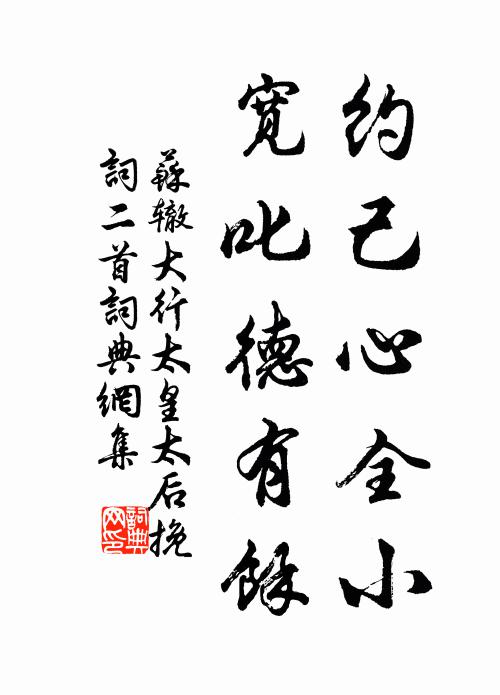 约己心全小
宽叱德有餘
蘇辙大行太皇太后挽
詞二首詞典網集
詞典
网印